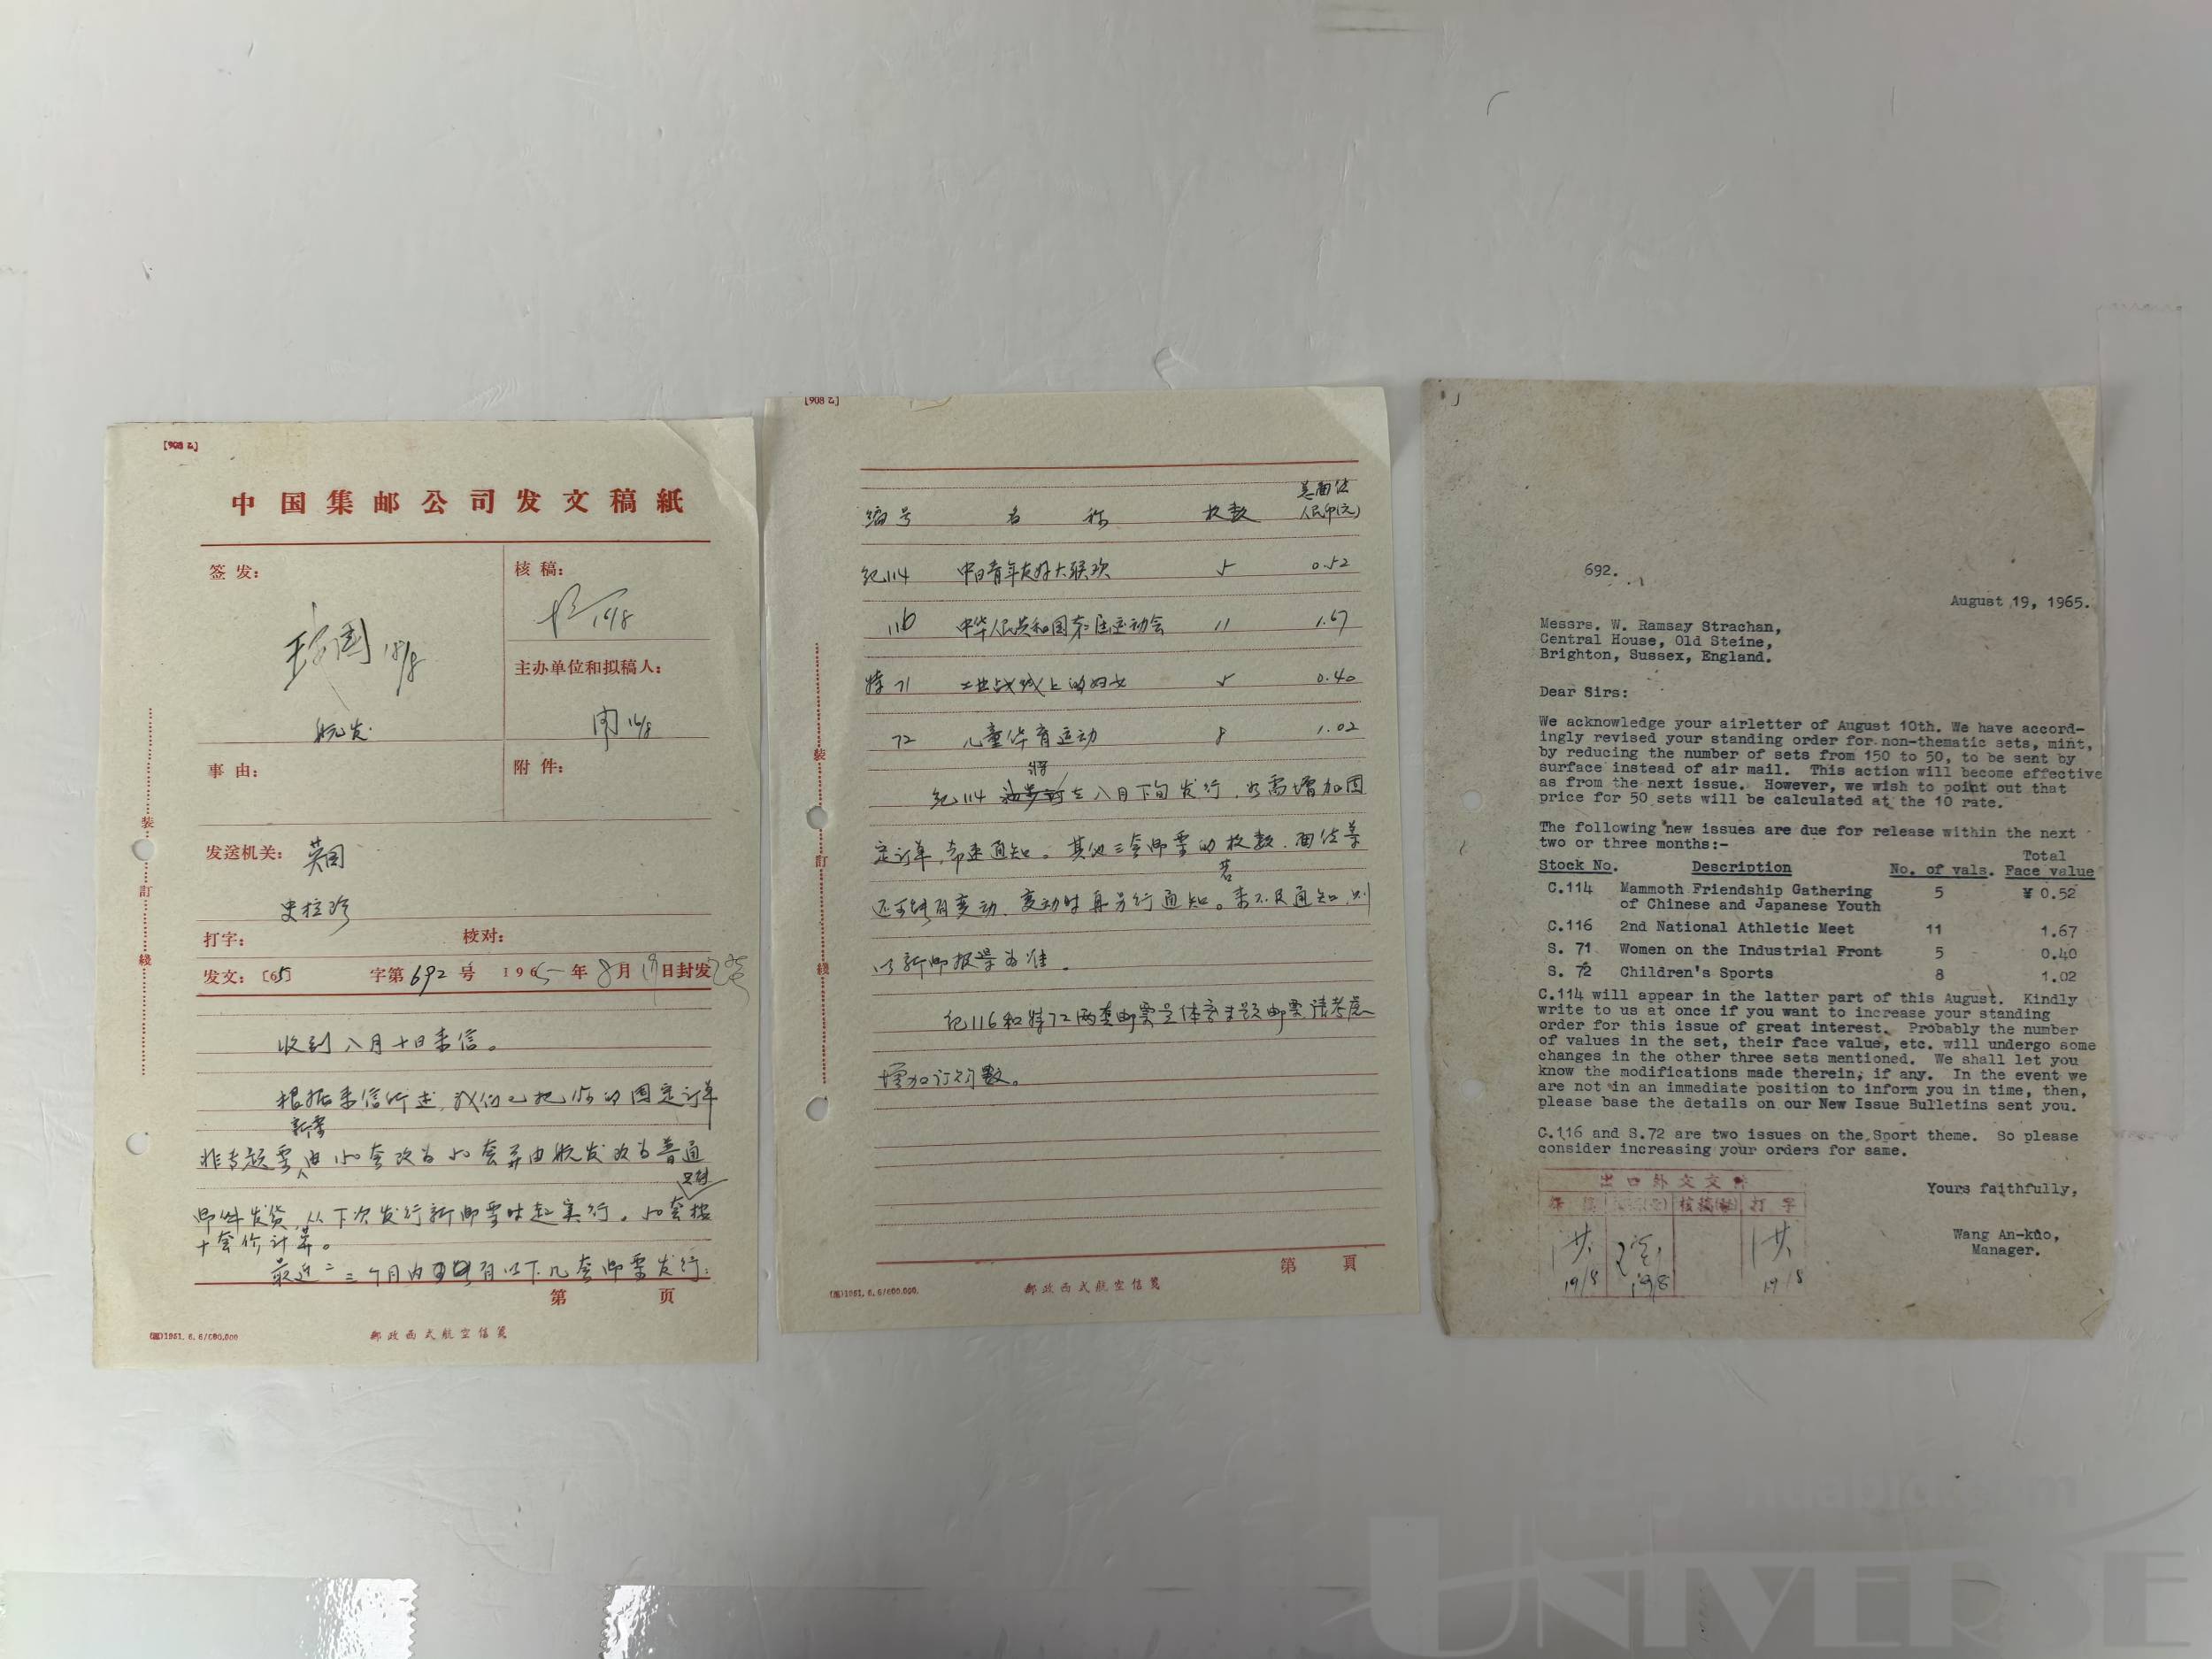 [908乙]
中国集邮公司发文稿紙
签发：
核稿：
16/8
18/8
主办单位和拟稿人：
航发
周 16/8
事由：
附件：
发送机关：英国
史拉珍
打字：
校对：
发文：[65] 字第692号 1965年8月19日封发
收到八月十日来信。
根据来信所述，我们已把你的固定订单
新票
非专题票由150套改为50套并由航发改为普通
邮件发货，从下次发行新邮票时起实行。50套按
十套价计算。
最近二三个月内有以下几套邮票发行：
第 页
(邮)1961.6.6/600.000
邮政西式航空信箋
装
訂
綫
[908乙]
总面值
编号 名称 枚数 人民币(元)
纪114 中日青年友好大联欢 5 0.52
116 中华人民共和国第二届运动会 11 1.67
特71 工业战线上的妇女 5 0.40
72 儿童体育运动 8 1.02
将
纪114 在八月下旬发行，如需增加固
定订单，希速通知。其他三套邮票的枚数、面值等
若
还可能有变动，变动时再另行通知。来不及通知，则
以新邮报导为准。
纪116和特72两套邮票是体育专题邮票请考虑
增加订购数。
第 頁
(邮)1961.6.6/600.000.
邮政西式航空信箋
装
訂
綫
692.
August 19, 1965.
Messrs. W. Ramsay Strachan,
Central House, Old Steine,
Brighton, Sussex, England.
Dear Sirs:
We acknowledge your airletter of August 10th. We have accord-
ingly revised your standing order for non-thematic sets, mint,
by reducing the number of sets from 150 to 50, to be sent by
surface instead of air mail. This action will become effective
as from the next issue. However, we wish to point out that
price for 50 sets will be calculated at the 10 rate.
The following new issues are due for release within the next
two or three months:-
Total
Stock No. Description No. of vals. Face value
C.114 Mammoth Friendship Gathering 5 ¥ 0.52
of Chinese and Japanese Youth
C.116 2nd National Athletic Meet 11 1.67
S. 71 Women on the Industrial Front 5 0.40
S. 72 Children's Sports 8 1.02
C.114 will appear in the latter part of this August. Kindly
write to us at once if you want to increase your standing
order for this issue of great interest. Probably the number
of values in the set, their face value, etc. will undergo some
changes in the other three sets mentioned. We shall let you
know the modifications made therein, if any. In the event we
are not in an immediate position to inform you in time, then,
please base the details on our New Issue Bulletins sent you.
C.116 and S.72 are two issues on the Sport theme. So please
consider increasing your orders for same.
Yours faithfully,
Wang An-kuo,
Manager.
出口外文文件
核稿 打字
19/8 19/8 19/8
UNIVERSE